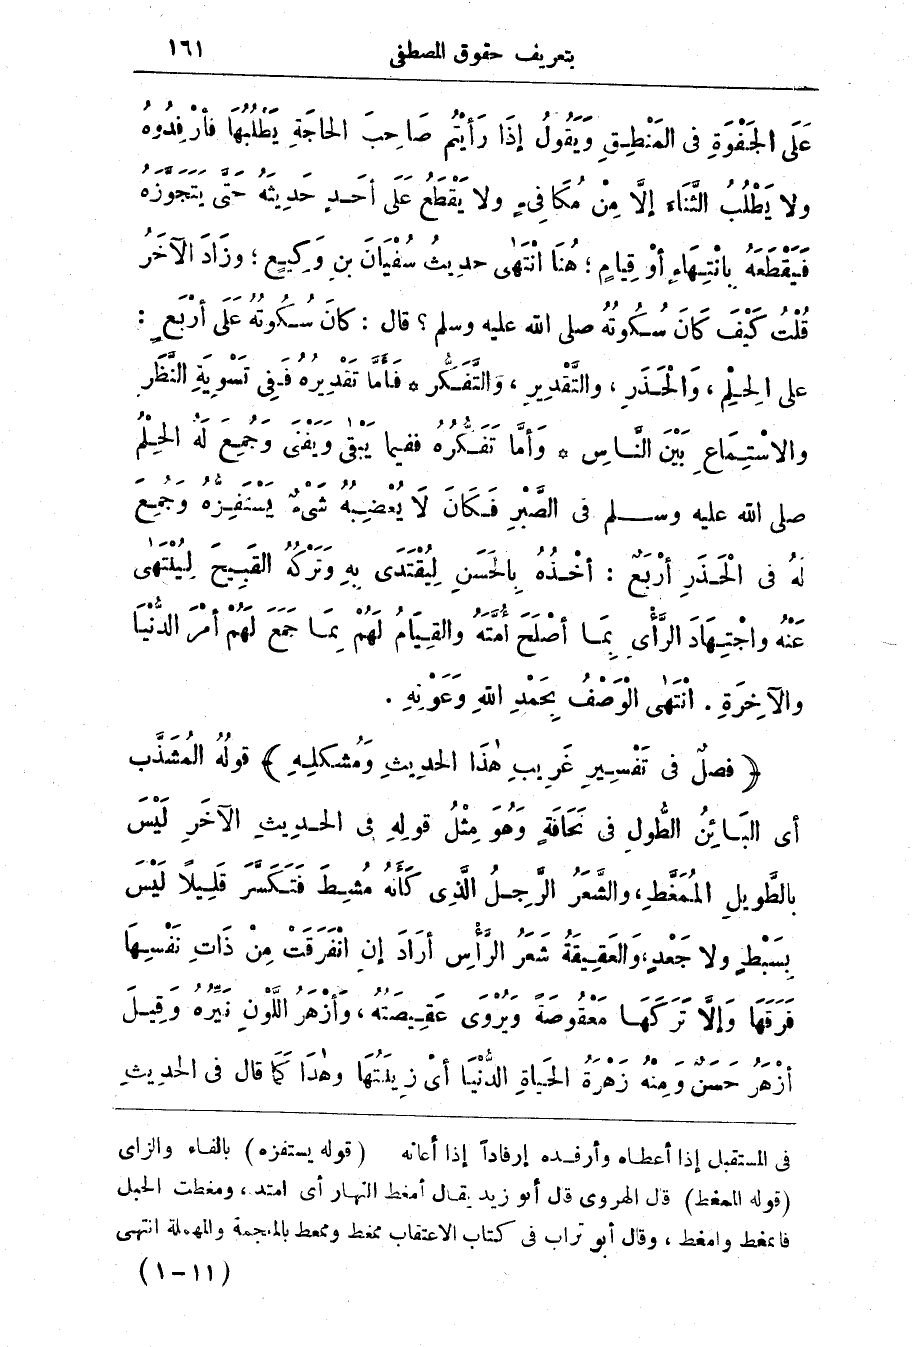 بتعريف حقوق المصطفى ١٦١
عَلَى الجَفْوَةِ فى المَنْطِقِ وَيَقُولُ إذَا رَأَيْتُمْ صَاحِبَ الحاجَةِ يَطْلُبُهَا فَأرْفِدُوهُ
ولا يَطْلُبُ الثَّنَاءَ إلَّا مِنْ مُكَافِىءٍ ولا يَقْطَعُ عَلَى أحَدٍ حَدِيثَهُ حَتَّى يَتَجَوَّزَهُ
فَيَقْطَعَهُ بِانْتِهَاءٍ أوْ قِيامٍ ؛ هُنَا انْتَهٰى حديثُ سُفْيَانَ بنِ وَكِيعٍ ؛ وزَادَ الآخَرُ
قُلْتُ كَيْفَ كَانَ سُكُوتُهُ صلى الله عليه وسلم ؟ قال : كانَ سُكُوتُهُ عَلَى أرْبَعٍ :
على الحِلْمِ ، وَالْحَذَرِ ، والتَّقْدِيرِ ، وَالتَّفَكُّرِ * فَأمَّا تَقْدِيرُهُ فَفِى تَسْوِيَةِ النَّظَرِ
والاسْتِمَاعِ بَيْنَ النَّاسِ * وَأمَّا تَفَكُّرُهُ ففيما يَبْقٰى وَيَفْنَى وَجُمِعَ لَهُ الحِلْمُ
صلى الله عليه وسلم فى الصَّبْرِ فَكَانَ لَا يُغْضِبُهُ شَىْءٌ يَسْتَفِزُّهُ وَجُمِعَ
لَهُ فى الْحَذَرِ أرْبَعٌ : أخْذُهُ بِالحَسَنِ لِيُقْتَدَى بِهِ وَتَرْكُهُ القَبِيحَ لِيُنْتَهٰى
عَنْهُ واجْتِهَادَ الرَّأْىِ بِمَا أصْلَحَ أُمَّتَهُ والقِيَامُ لَهُمْ بِمَا جَمَعَ لَهُمْ أمْرَ الدُّنْيَا
والآخِرَةِ . انْتَهٰى الْوَصْفُ بِحَمْدِ اللهِ وَعَوْنِهِ .
﴿ فصلٌ فى تَفْسِيرِ غَرِيبِ هٰذَا الحديثِ وَمُشكلِهِ ﴾ قولُهُ المُشَذَّب
أى البَائِنُ الطُّولِ فى نَحَافَةٍ وَهُوَ مِثْلُ قولِهِ فى الحديثِ الآخَرِ لَيْسَ
بالطَّويلِ المُمَغَّطِ، والشَّعَرُ الرَّجِلُ الَّذِى كَأنَّهُ مُشِطَ فَتَكَسَّرَ قَلِيلًا لَيْسَ
بِسَبْطٍ ولا جَعْدٍ، وَالعَقِيقَةُ شَعَرُ الرَّأْسِ أرَادَ إنِ انْفَرَقَتْ مِنْ ذَاتِ نَفْسِهَا
فَرَقَهَا وَإلَّا تَرَكَهَا مَعْقُوصَةً وَيُرْوَى عَقِيصَتُهُ ، وَأزْهَرُ اللَّوْنِ نَيِّرُهُ وَقِيلَ
أزْهَرُ حَسَنٌ وَمِنْهُ زَهْرَةُ الحَيَاةِ الدُّنْيَا أىْ زِينَتُهَا وهٰذَا كَمَا قال فى الحديثِ
فى المستقبل إذا أعطاه وأرفده إرفاداً إذا أعانه (قوله يستفزه) بالفاء والزاى
(قوله الممغط) قال الهروى قال أبو زيد يقال أمغط النهار أى امتد ، ومغطت الحبل
فانمغط وامغط ، وقال أبو تراب فى كتاب الاعتقاب ممغط وممعط بالمعجمة والمهملة انتهى
(١١ – ١)